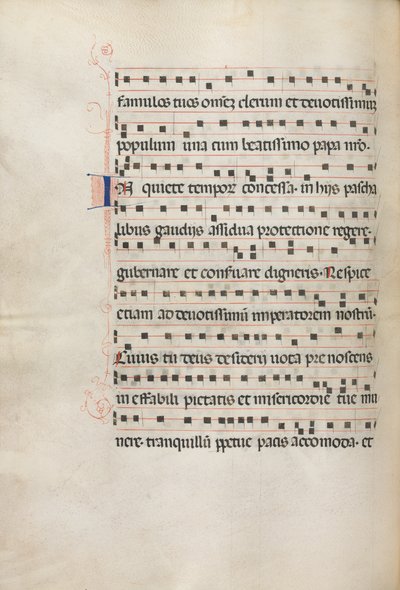 famulos tuos omnez clerum et deuotissimuz
populum una cum beatissimo papa nro·
quiete tempoꝝ concessa· in hijs pascha
libus gaudijs assidua protectione regere·
gubernare et conseruare digneris· Respice
etiam ad deuotissimū imperatorem nostrū·
Cuius tu deus desiderij uota prenoscens
ineffabili pietatis et misericordie tue mu
nere· tranquillū ppetue pacis accomoda· et